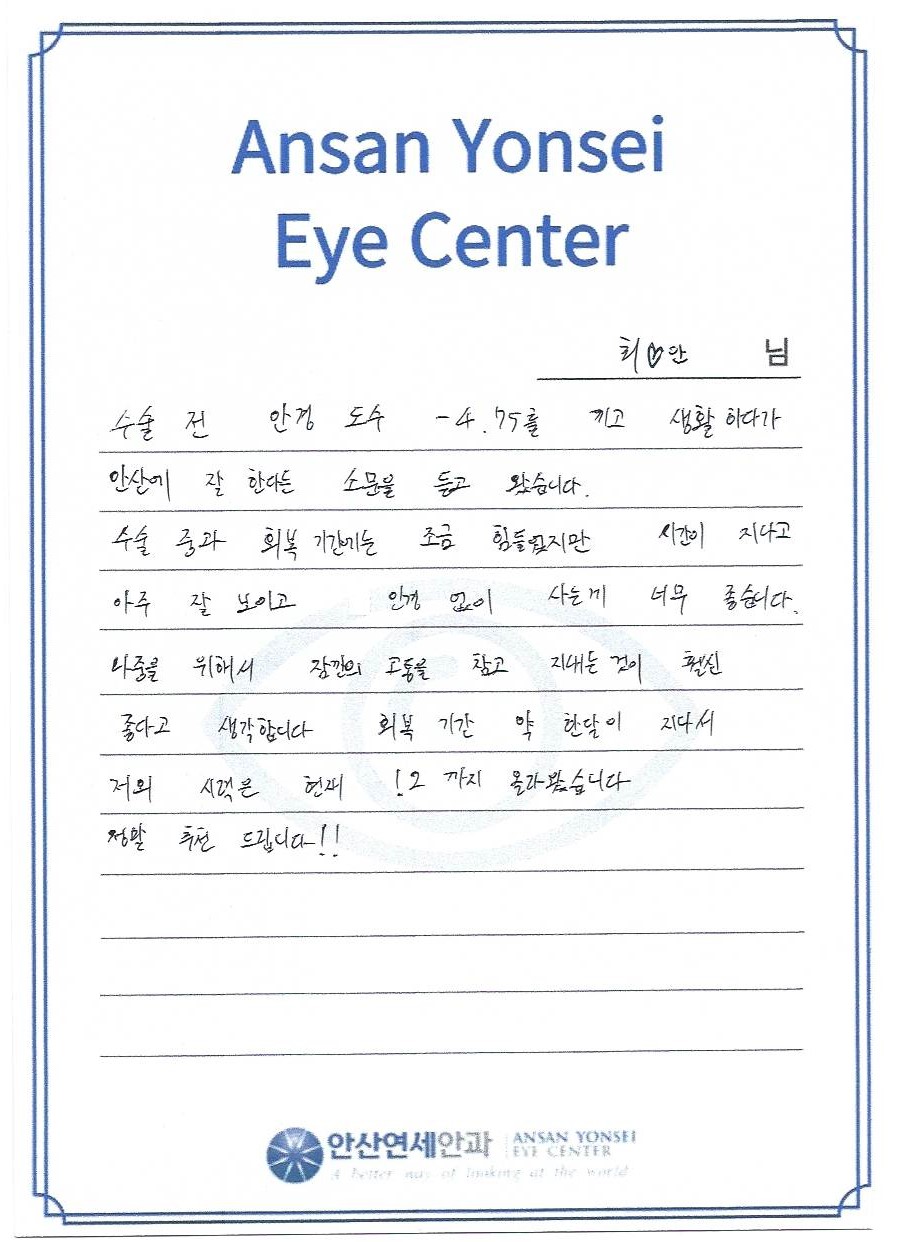 Ansan Yonsei
Eye Center
최♡안 님
수술 전 안경 도수 -4.75를 끼고 생활 하다가
안산에 잘 한다는 소문을 듣고 왔습니다.
수술 중과 회복 기간에는 조금 힘들었지만 시간이 지나고
아주 잘 보이고 안경 없이 사는게 너무 좋습니다.
나중을 위해서 잠깐의 고통을 참고 지내는 것이 훨씬
좋다고 생각합니다 회복 기간 약 한달이 지나서
저의 시력은 현재 1.2 까지 올라왔습니다
정말 추천 드립니다!!
안산연세안과 ANSAN YONSEI
EYE CENTER
A better way of looking at the world